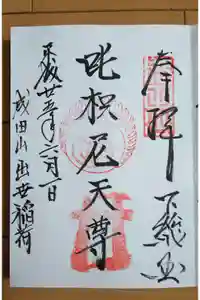 奉拝
下総国
吒枳尼天尊
平成廿五年六月一日
成田山出世稲荷